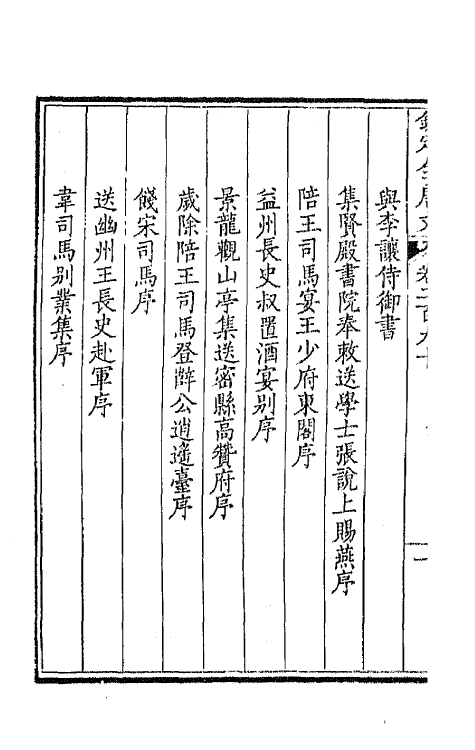 欽定全唐文卷二百九十
與李讓侍御書
集賢殿書院奉敕送學士張說上賜燕序
陪王司馬宴王少府東閣序
益州長史叔置酒宴別序
景龍觀山亭集送密縣高贊府序
歲除陪王司馬登薛公逍遙臺序
餞宋司馬序
送幽州王長史赴軍序
韋司馬別業集序